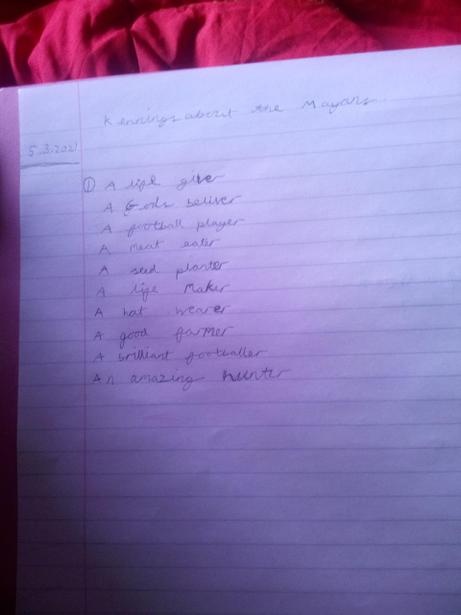 Kennings about the Mayans
5.3.2021
① A life giver
A Gods beliver
A football player
A meat eater
A seed planter
A life Maker
A hat wearer
A good farmer
A brilliant footballer
An amazing hunter